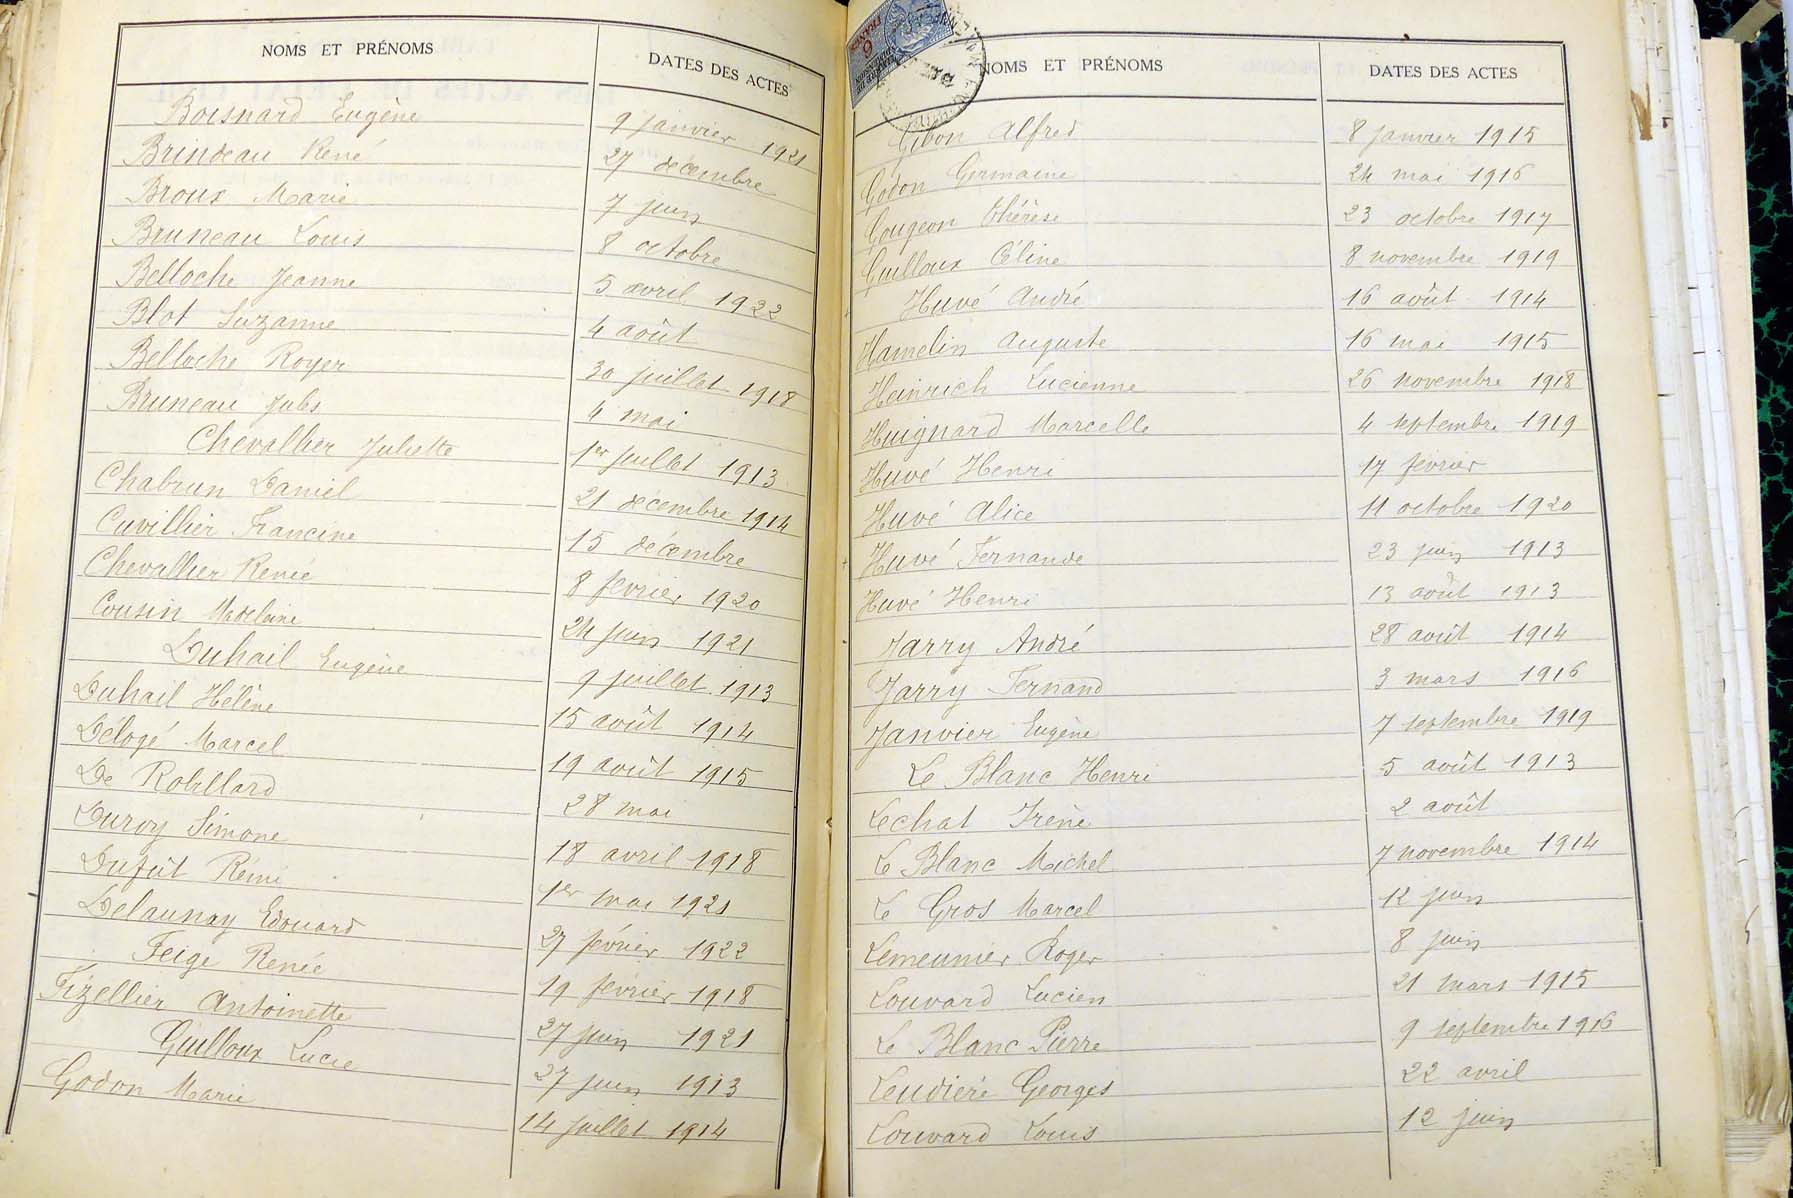 NOMS ET PRÉNOMS DATES DES ACTES
Boisnard Eugène 9 janvier 1921
Brindeau René 27 décembre
Broux Marie 7 juin
Bruneau Louis 8 octobre
Belloche Jeanne 5 avril 1922
Blot Suzanne 4 août
Belloche Royer 30 juillet 1918
Bruneau Jules 4 mai
Chevallier Juliette 1er juillet 1913
Chabrun Daniel 21 décembre 1914
Cuvillier Francine 15 décembre
Chevallier Renée 8 février 1920
Cousin Madeleine 24 juin 1921
Duhail Eugène 9 juillet 1913
Duhail Hélène 15 août 1914
Délogé Marcel 19 août 1915
De Robillard 28 mai
Duroy Simone 18 avril 1918
Dufût Rémi 1er mai 1921
Delaunay Edouard 27 février 1922
Feige Renée 19 février 1918
Fizellier Antoinette 27 juin 1921
Guilloux Lucie 27 juin 1913
Godon Marie 14 juillet 1914
NOMS ET PRÉNOMS DATES DES ACTES
Gibon Alfred 8 janvier 1915
Godon Germaine 24 mai 1916
Gougeon Thérèse 23 octobre 1917
Guilloux Céline 8 novembre 1919
Huvé André 16 août 1914
Hamelin Auguste 16 mai 1915
Heinrich Lucienne 26 novembre 1918
Huignard Marcelle 4 septembre 1919
Huvé Henri 17 février
Huvé Alice 11 octobre 1920
Huvé Fernande 23 juin 1913
Huvé Henri 13 août 1913
Jarry André 28 août 1914
Jarry Fernand 3 mars 1916
Janvier Eugène 7 septembre 1919
Le Blanc Henri 5 août 1913
Lechat Irène 2 août
Le Blanc Michel 7 novembre 1914
Le Gros Marcel 12 juin
Lemeunier Roger 8 juin
Louvard Lucien 21 mars 1915
Le Blanc Pierre 9 septembre 1916
Leudière Georges 22 avril
Louvard Louis 12 juin